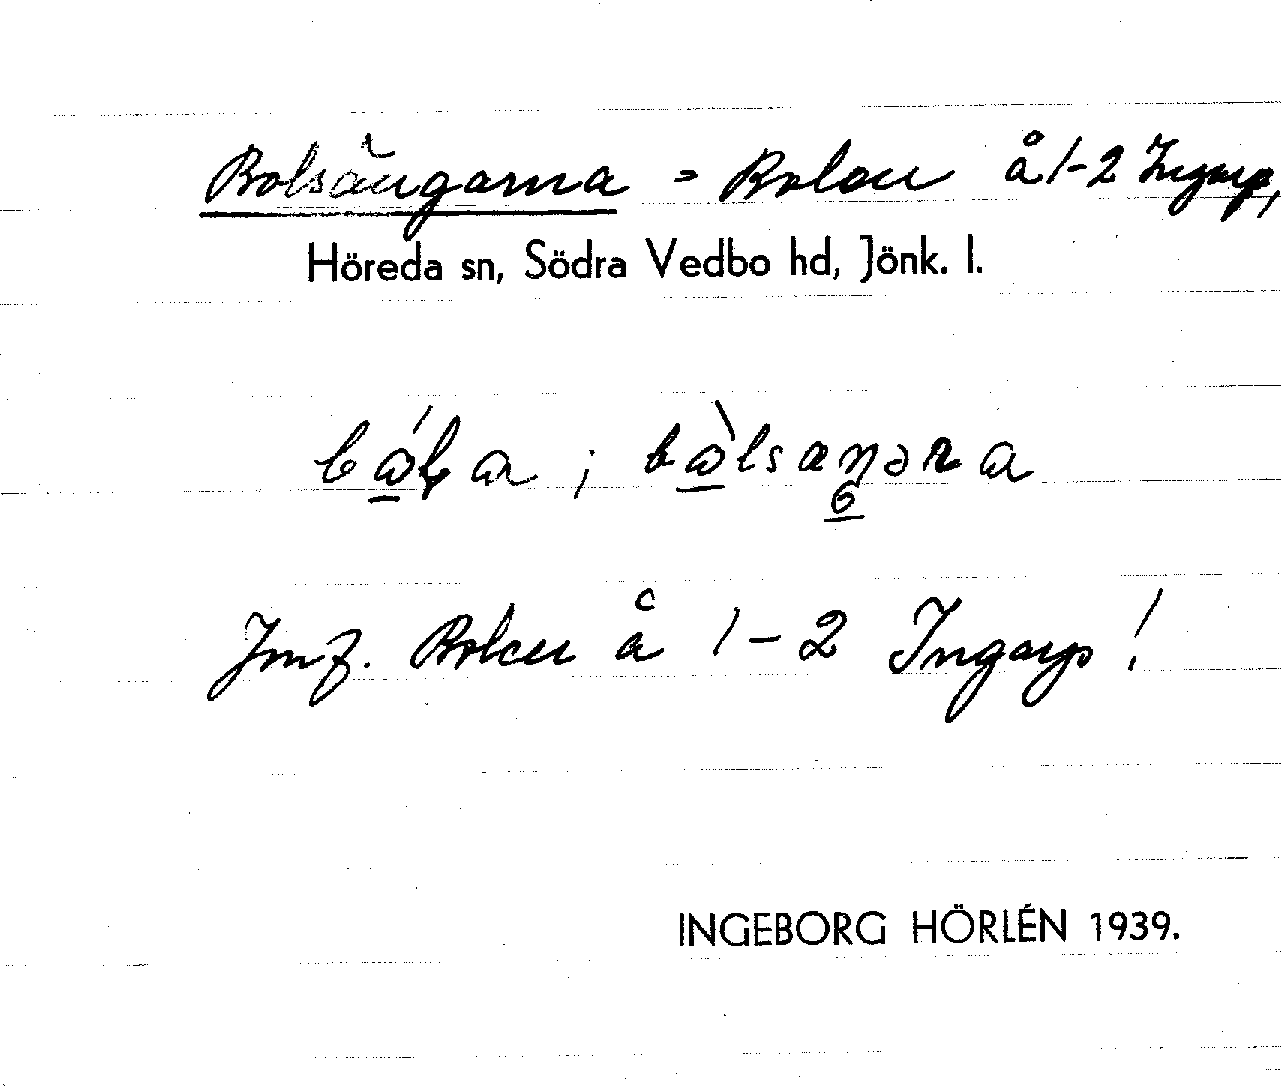 Bolsängarna = Bolen å 1-2 Ingarp,
Höreda sn, Södra Vedbo hd, Jönk. l.
Jmf. Bolen å 1-2 Ingarp!
INGEBORG HÖRLÉN 1939.